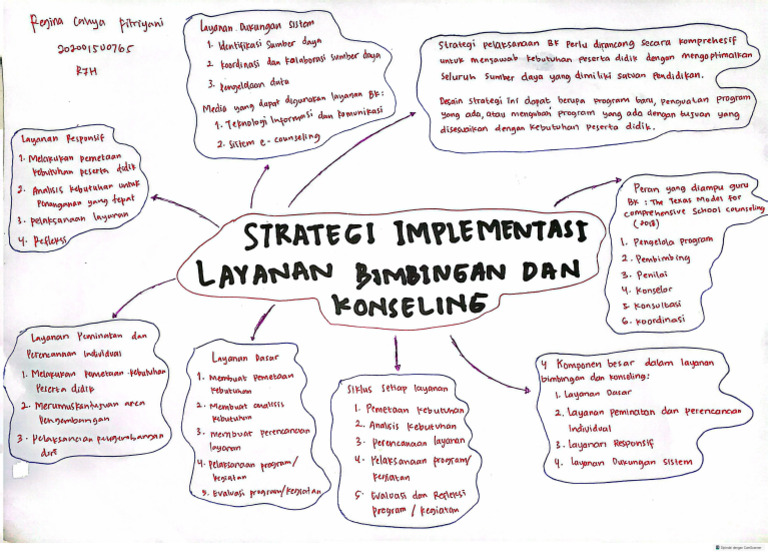 Regina Cahya Fitriyani
202001500765
R7H
Layanan Dukungan Sistem
1. Identifikasi Sumber daya
2. Koordinasi dan Kolaborasi Sumber daya
3. Pengelolaan data
Media yang dapat digunakan layanan BK:
1. Teknologi Informasi dan Komunikasi
2. Sistem e-counseling
Strategi pelaksanaan BK Perlu dirancang Secara komprehesif
untuk menjawab kebutuhan peserta didik dengan mengoptimalkan
Seluruh Sumber daya yang dimiliki satuan Pendidikan.
Desain Strategi ini dapat berupa program baru, penguatan program
yang ada, atau mengubah program yang ada dengan tujuan yang
disesuaikan dengan kebutuhan Peserta didik.
Layanan Responsif
1. Melakukan pemetaan
kebutuhan peserta didik
2. Analisis kebutuhan untuk
Penanganan yang tepat
3. pelaksanaan layanan
4. Refleksi
STRATEGI IMPLEMENTASI
LAYANAN BIMBINGAN DAN
KONSELING
Peran yang diampu guru
BK : The Texas Model for
comprehensive School counseling
(2018)
1. Pengelola program
2. Pembimbing
3. Penilai
4. Konselor
5. Konsultasi
6. Koordinasi
Layanan Peminatan dan
Perencanaan Individual
1. Melakukan Pemetaan kebutuhan
Peserta didik
2. Merumuskan tujuan area
Pengembangan
3. pelaksanaan pengembangan
diri
Layanan Dasar
1. Membuat Pemetaan
kebutuhan
2. Membuat analisis
kebutuhan
3. Membuat perencanaan
layanan
4. Pelaksanaan program/
kegiatan
5. Evaluasi program/kegiatan
Siklus setiap layanan
1. Pemetaan kebutuhan
2. Analisis kebutuhan
3. Perencanaan layanan
4. Pelaksanaan program/
kegiatan
5. Evaluasi dan Refleksi
program / kegiatan
4 Komponen besar dalam layanan
bimbingan dan konseling:
1. Layanan Dasar
2. Layanan peminatan dan perencanaan
Individual
3. Layanan Responsif
4. Layanan Dukungan Sistem